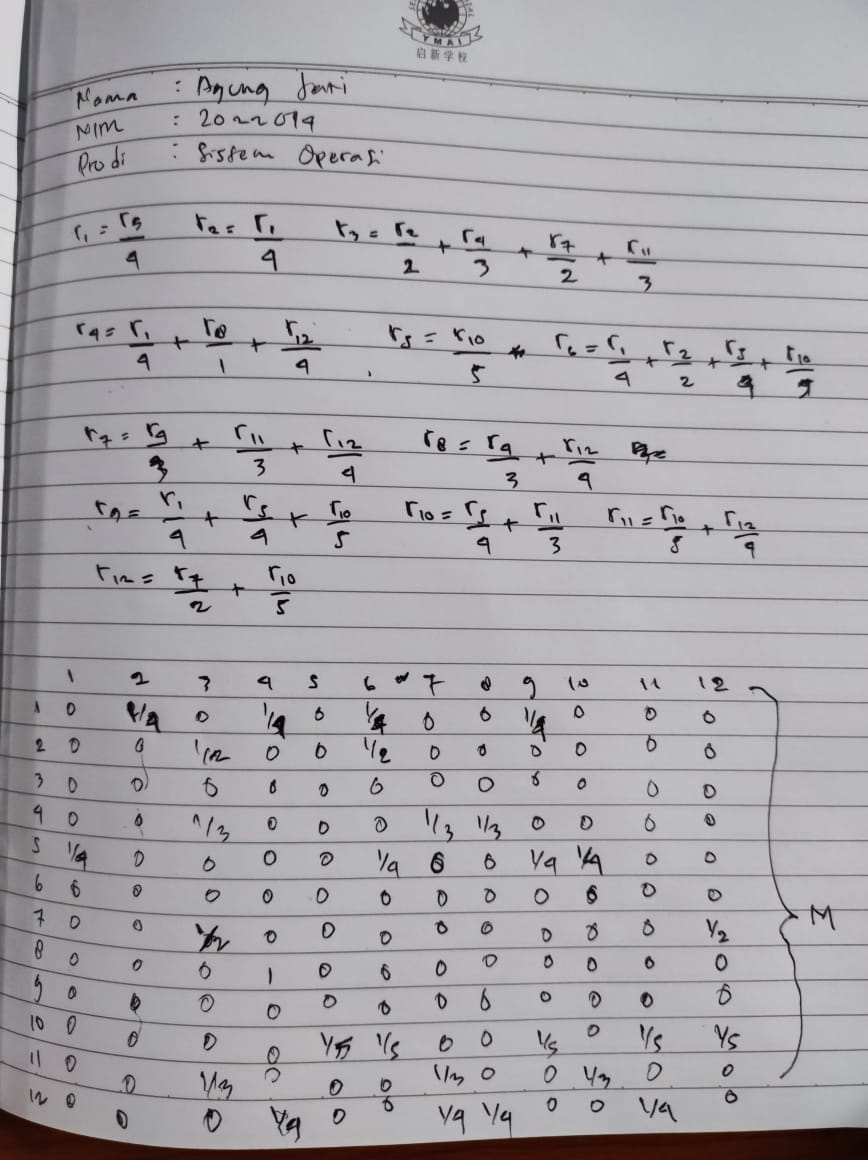 YMAI
启新学校
Nama : Agung Jati
NIM : 2022014
Prodi : Sistem Operasi
r₁ = r₅/4 r₂ = r₁/4 r₃ = r₂/2 + r₄/3 + r₇/2 + r₁₁/3
r₄ = r₁/4 + r₈/1 + r₁₂/4 , r₅ = r₁₀/5 r₆ = r₁/4 + r₂/2 + r₅/4 + r₁₀/5
r₇ = r₄/3 + r₁₁/3 + r₁₂/4 r₈ = r₄/3 + r₁₂/4
r₉ = r₁/4 + r₅/4 + r₁₀/5 r₁₀ = r₅/4 + r₁₁/3 r₁₁ = r₁₀/5 + r₁₂/4
r₁₂ = r₇/2 + r₁₀/5
1 2 3 4 5 6 7 8 9 10 11 12
1 0 1/4 0 1/4 0 1/4 0 0 1/4 0 0 0
2 0 0 1/2 0 0 1/2 0 0 0 0 0 0
3 0 0 0 0 0 0 0 0 0 0 0 0
4 0 0 1/3 0 0 0 1/3 1/3 0 0 0 0
5 1/4 0 0 0 0 1/4 0 0 1/4 1/4 0 0
6 0 0 0 0 0 0 0 0 0 0 0 0
7 0 0 1/2 0 0 0 0 0 0 0 0 1/2
M
8 0 0 0 1 0 0 0 0 0 0 0 0
9 0 0 0 0 0 0 0 0 0 0 0 0
10 0 0 0 0 1/5 1/5 0 0 1/5 0 1/5 1/5
11 0 0 1/3 0 0 0 1/3 0 0 1/3 0 0
12 0 0 0 1/4 0 0 1/4 1/4 0 0 1/4 0